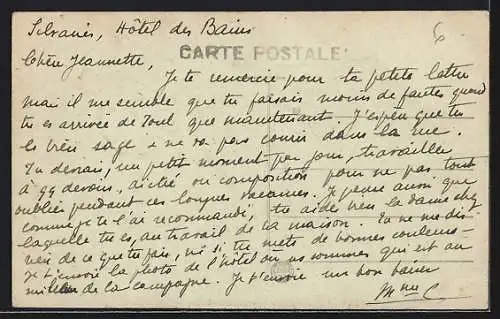 Silvanès, Hôtel des Bains
6
CARTE POSTALE
Chère Jeannette,
Je te remercie pour ta petite lettre
mais il me semble que tu faisais moins de fautes quand
tu es arrivée de Toul que maintenant. J'espère que tu
es bien sage & ne va pas courir dans la rue.
Tu devrais, un petit moment par jour, travailler
à qq devoirs, dictée ou composition pour ne pas tout
oublier pendant ces longues vacances. Je pense aussi que
comme je te l'ai recommandé, tu aides bien la dame chez
laquelle tu es, au travail de la maison. Tu ne me dis
rien de ce que tu fais, ni si tu mets de bonnes couleurs.
Je t'envoie la photo de l'hôtel où ns sommes qui est au
milieu de la campagne. Je t'envoie un bon baiser
Mme C